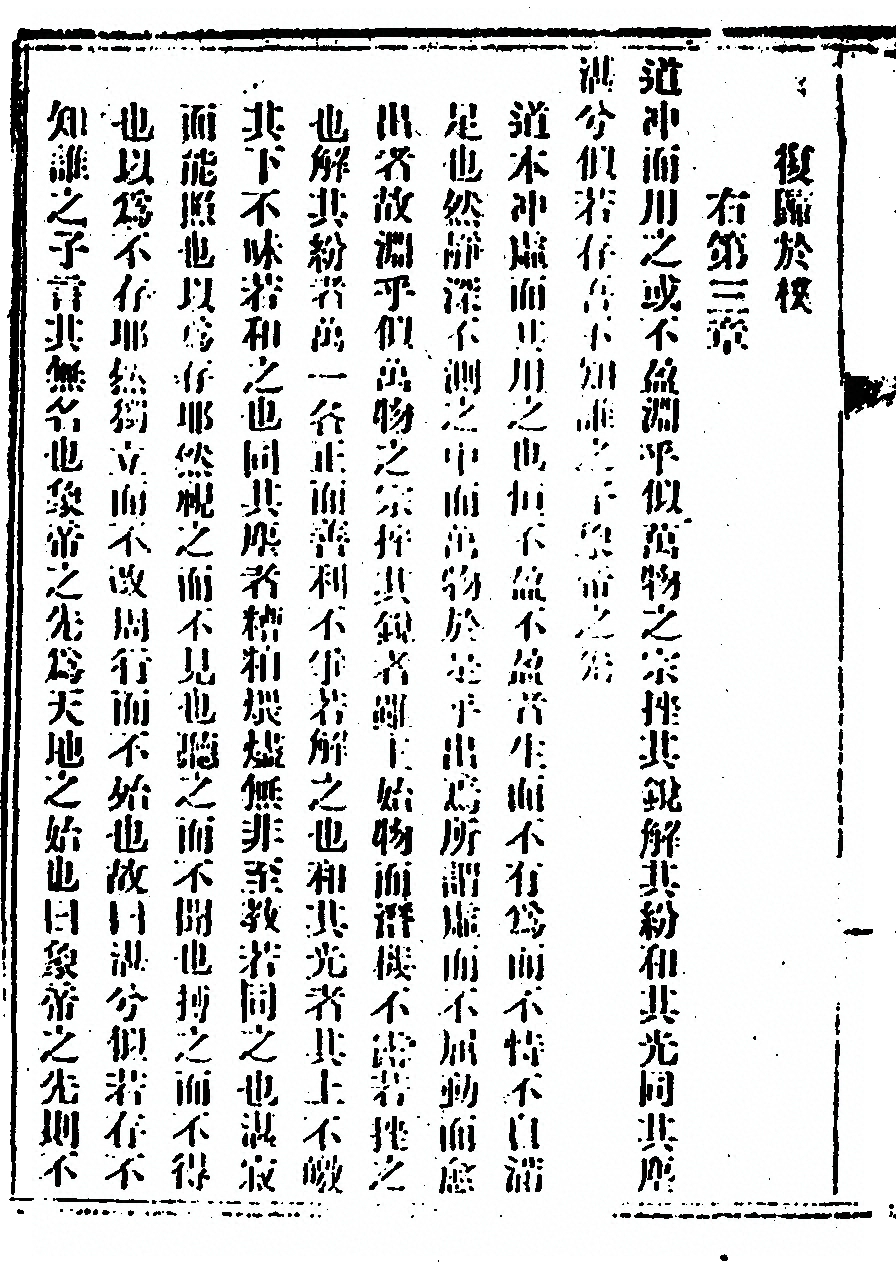 復歸於樸
右第三章
道冲而用之或不盈淵乎似萬物之宗挫其銳解其紛和其光同其塵
湛兮似若存吾不知誰之子象帝之先
道本冲虛而其用之也恒不盈不盈者生而不有爲而不恃不自滿
足也然靜深不測之中而萬物於是乎出焉所謂虛而不屈動而愈
出者故淵乎似萬物之宗挫其銳者雖上始物而潛機不露若挫之
也解其紛者萬一各正而善利不爭若解之也和其光者其上不皦
其下不昧若和之也同其塵者糟粕煨燼無非至教若同之也湛寂
而能照也以爲存耶然視之而不見也聽之而不聞也搏之而不得
也以爲不存耶然獨立而不改周行而不殆也故曰湛兮似若存不
知誰之子言其無名也象帝之先爲天地之始也曰象帝之先則不